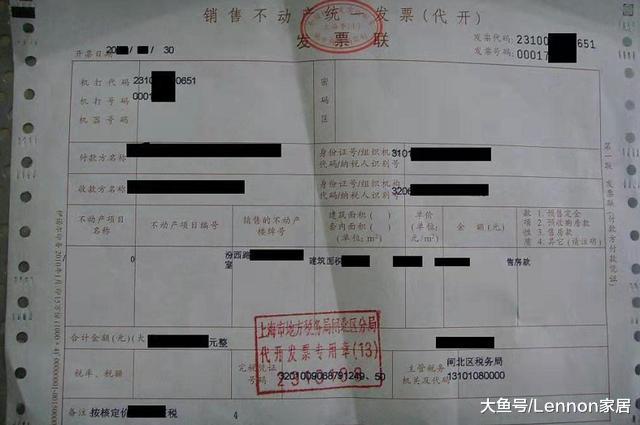 销售不动产统一发票(代开)
发票联
开票日期 20 30
发票代码: 23100 651
发票号码: 00017
机打代码 2310 0651
机打号码 0001
机器号码
密码区
付款方名称
身份证号/组织机构代码/纳税人识别号 3101
收款方名称
身份证号/组织机构代码/纳税人识别号 3206
不动产项目名称
不动产项目编号
销售的不动产楼牌号
建筑面积( )
套内面积( )
(单位: m²)
单价
(单位:元/m²)
金额(元)
款项性质
1. 预售定金
2. 预收购房款
3. 售房款
4. 其它(请注明)
0
汾西路 室
建筑面积
售房款
合计金额(元)(大 元整
上海市地方税务局闸北区分局
代开发票专用章(13)
税率、税额
完税凭证号码
主管税务机关及代码
闸北区税务局
13101080000
备注 按核定价 税
4
第一联 发票联(付款方付款凭证)
大鱼号/Lennon家居